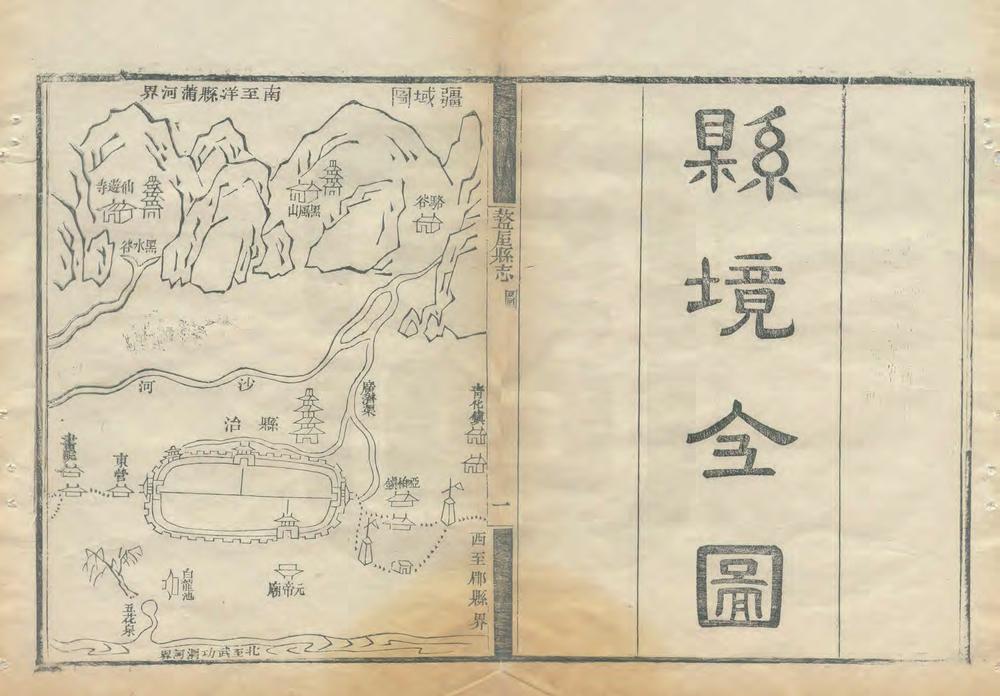 縣境全圖
盩厔縣志
圖
一
疆域圖
南至洋縣蒲河界
駱谷
黑鳳山
仙遊寺
黑水谷
沙河
廣濟渠
青化鎮
縣治
東營
亞柏鎮
西至郿縣界
元帝廟
白龍池
五花泉
北至武功渭河界